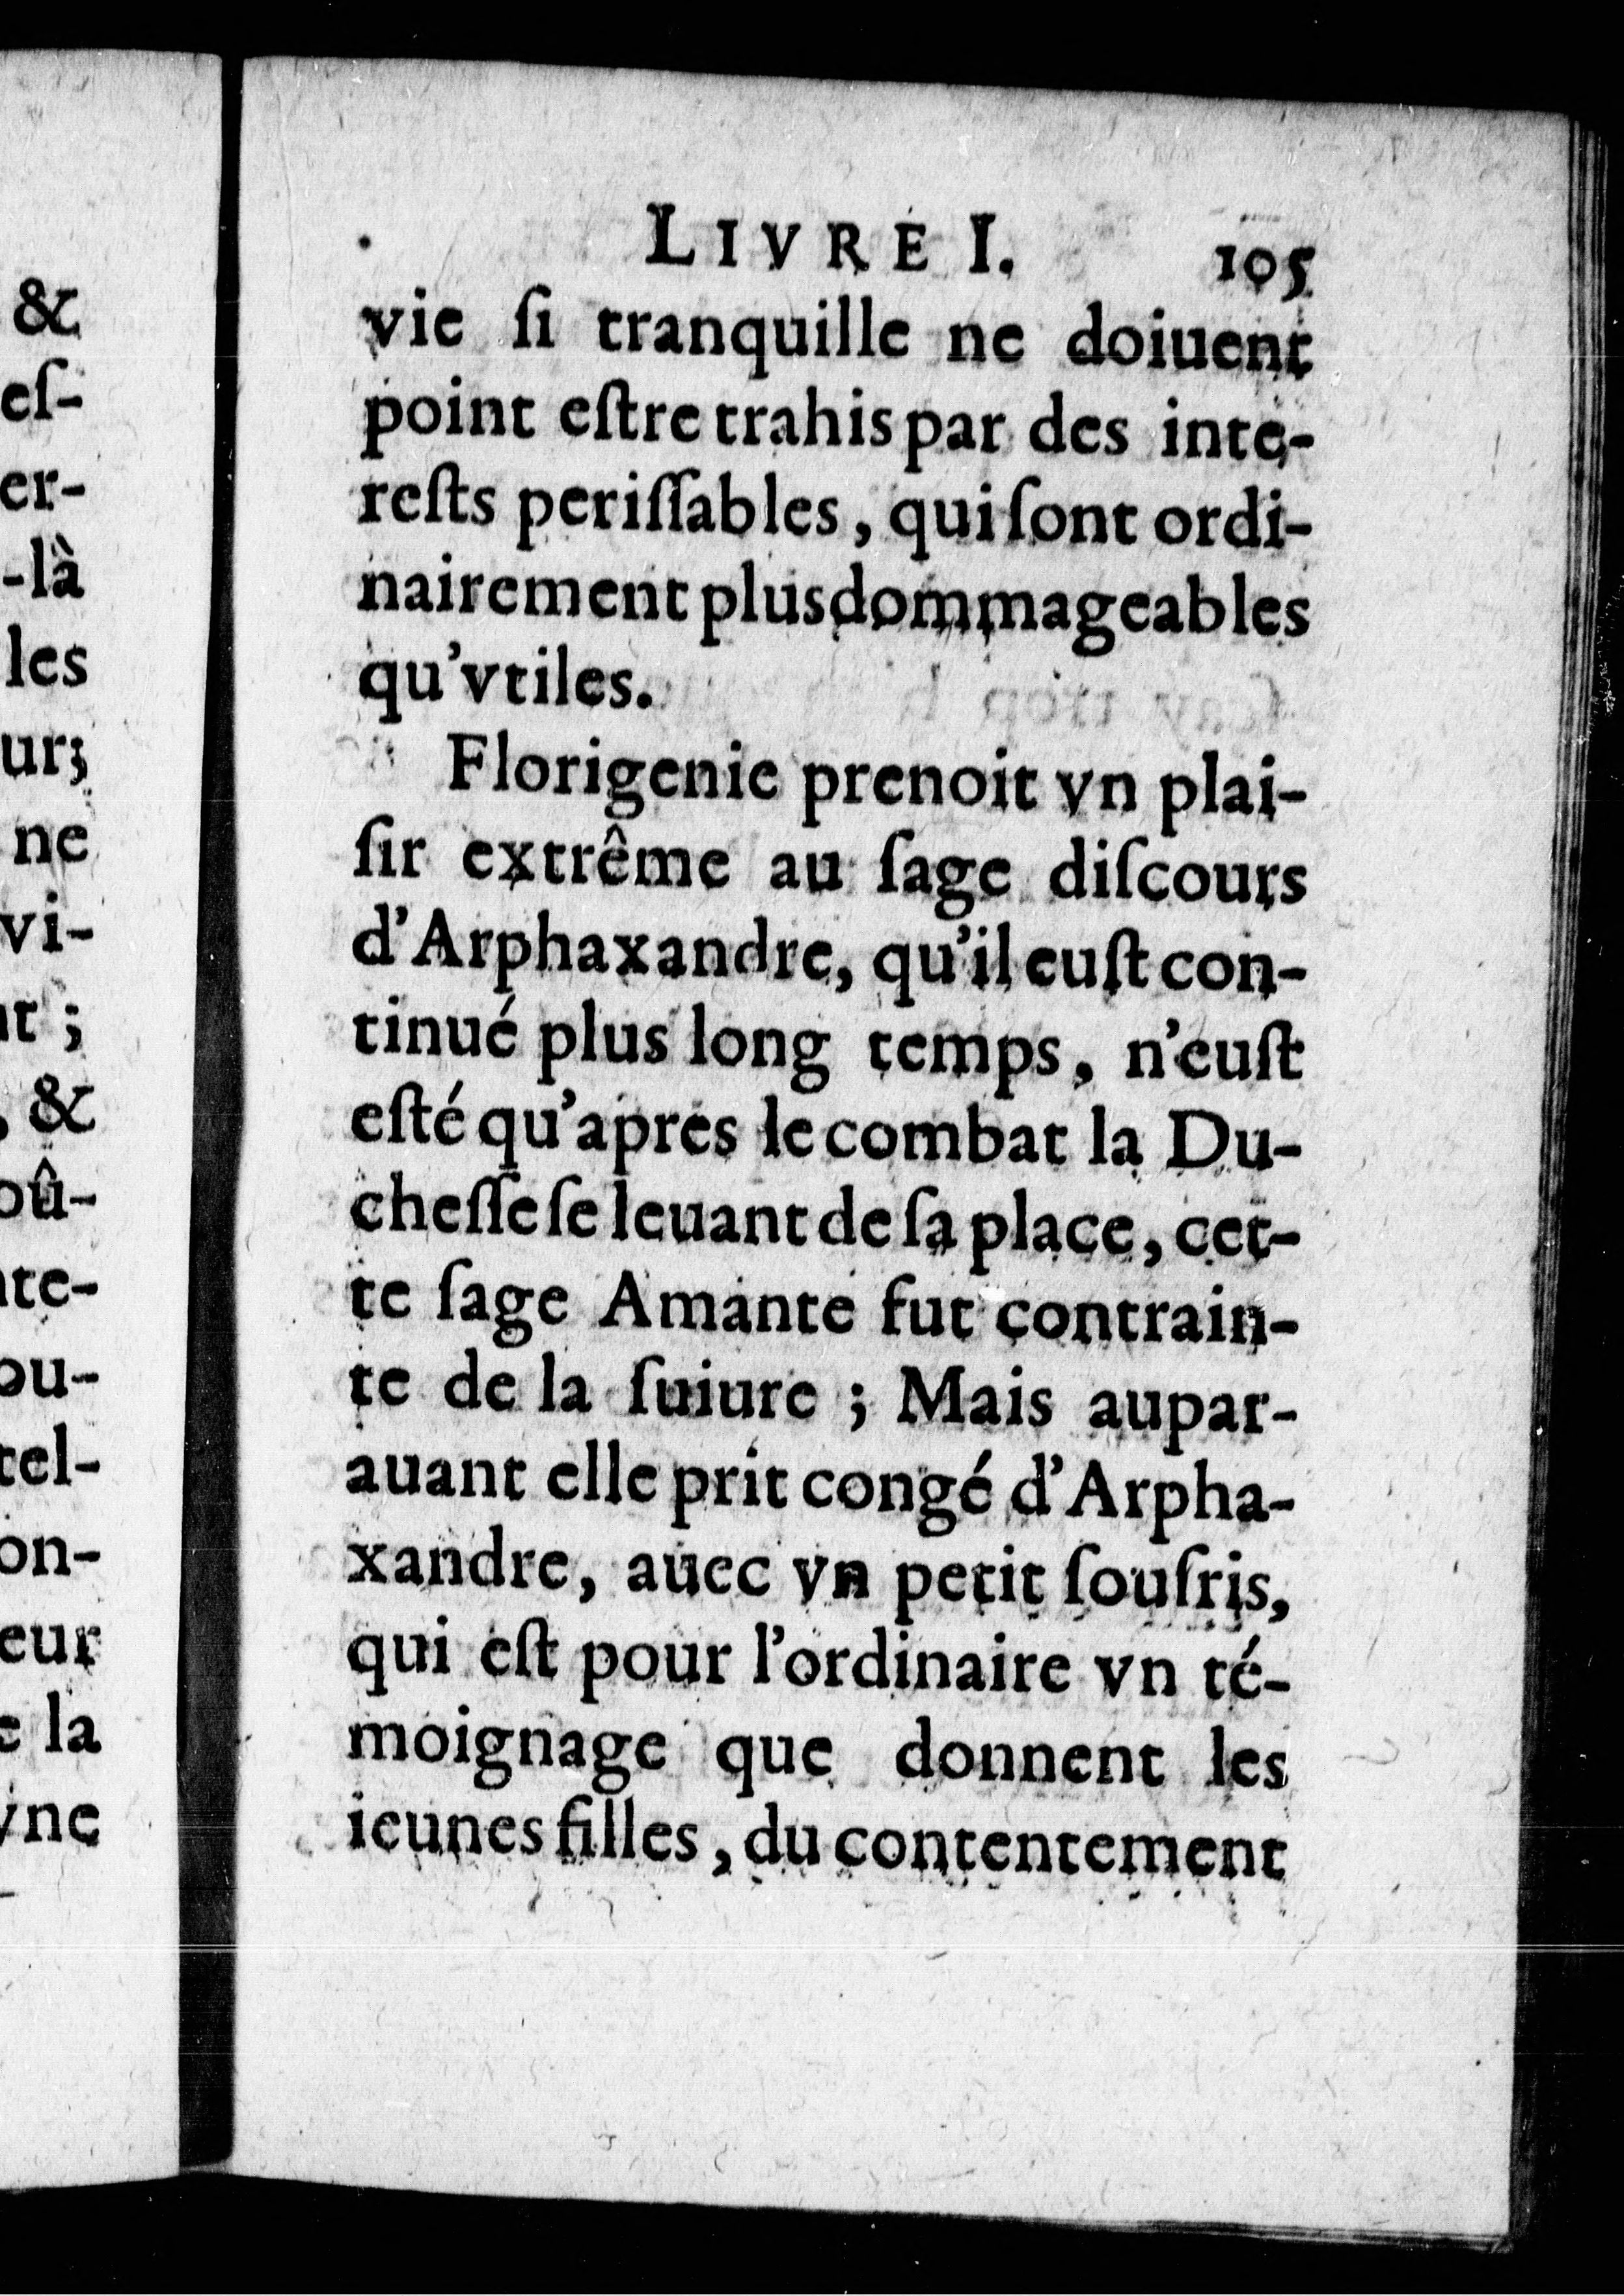 LIVRE I. 105
vie ſi tranquille ne doiuent
point eſtre trahis par des inte-
reſts periſſables, qui ſont ordi-
nairement plus dommageables
qu'vtiles.
Florigenie prenoit vn plai-
ſir extrême au ſage diſcours
d'Arphaxandre, qu'il euſt con-
tinué plus long temps, n'euſt
eſté qu'apres le combat la Du-
cheſſe ſe leuant de ſa place, cet-
te ſage Amante fut contrain-
te de la ſuiure ; Mais aupar-
auant elle prit congé d'Arpha-
xandre, auec vn petit ſouſris,
qui eſt pour l'ordinaire vn té-
moignage que donnent les
ieunes filles, du contentement